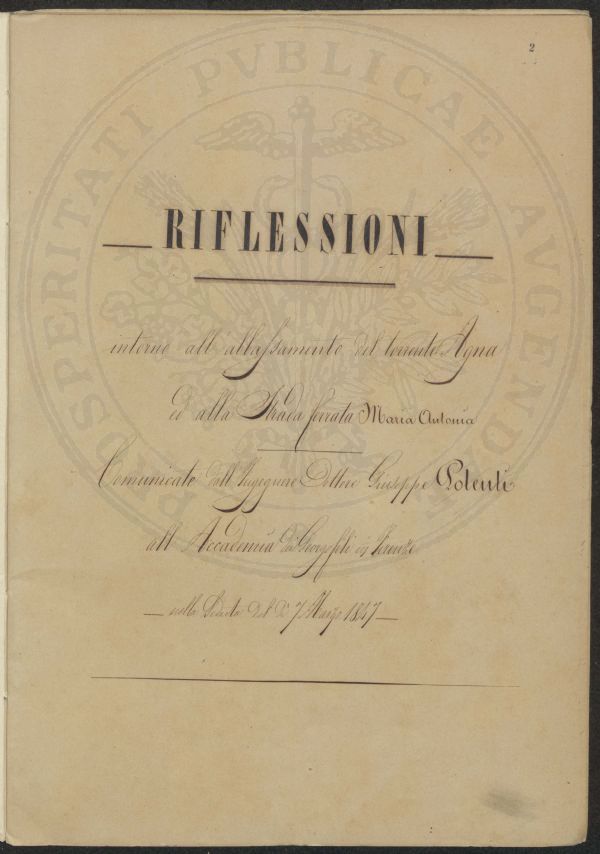 PROSPERITATI PUBLICAE AVGENDAE
2
RIFLESSIONI
intorno all'abbassamento del torrente Agna
ed alla Strada ferrata Maria Antonia
Comunicate dall'Ingegnere Dottore Giuseppe Potenti
all'Accademia dei Georgofili di Firenze
nella Seduta del dì 7 Marzo 1847